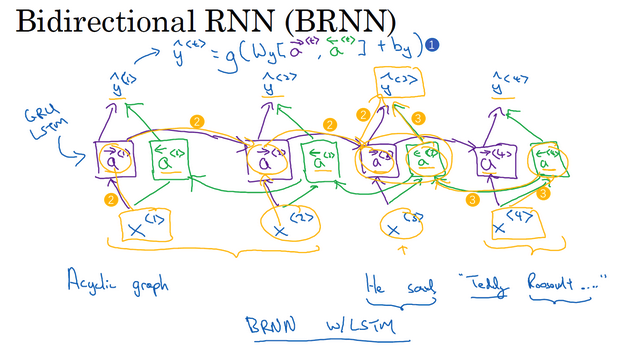 Bidirectional RNN (BRNN)
ŷ<t> = g(Wy[a→<t>, a←<t>] + by) 1
ŷ<1> ŷ<2> ŷ<3> ŷ<4>
GRU
LSTM
2 2 2 3
a→<1> a←<1> a→<2> a←<2> a→<3> a←<3> a→<4> a←<4>
2 3 3
x<1> x<2> x<3> x<4>
Acyclic graph He said "Teddy Roosevelt ...."
BRNN w/LSTM